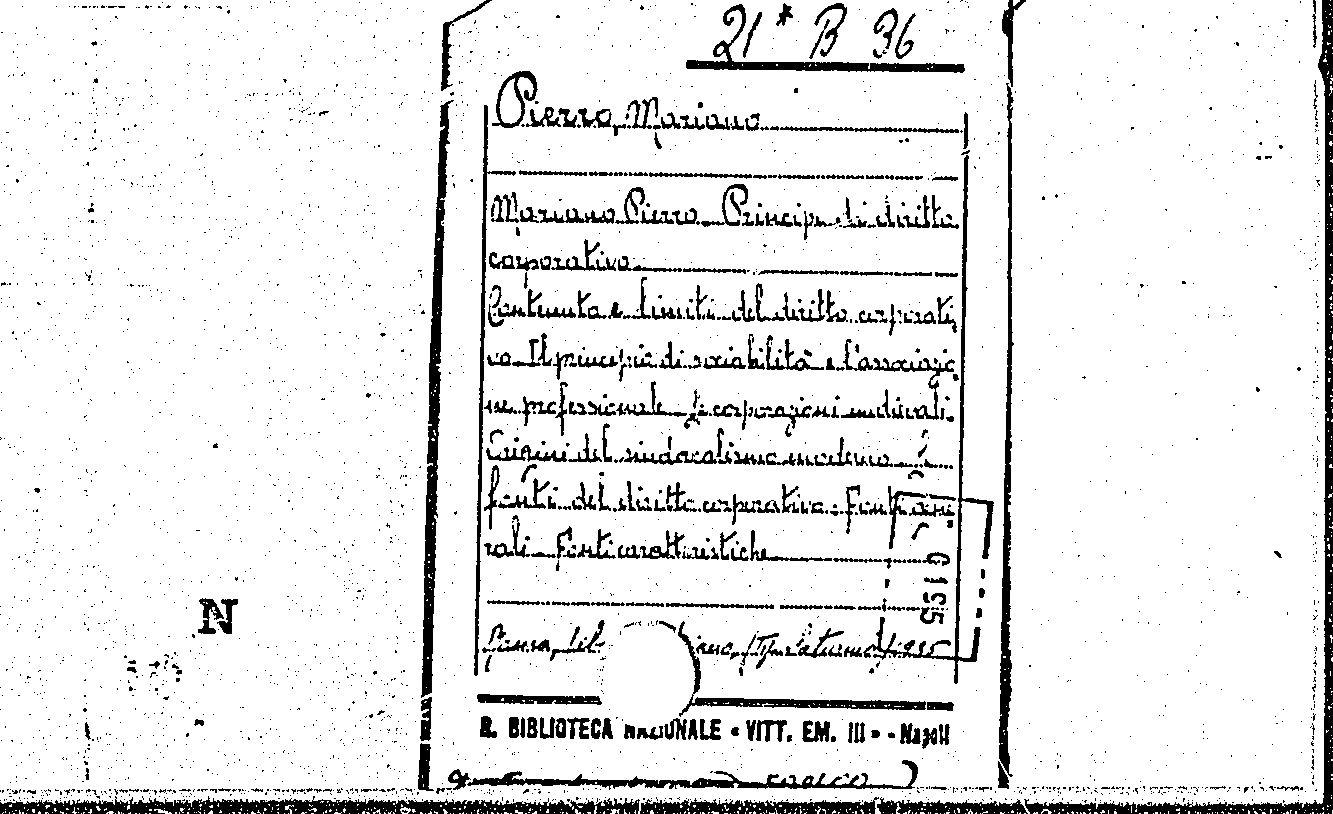 21* B 36
Pierro, Mariano
Mariano Pierro. Principi di diritto
corporativo.
Contenuto e limiti del diritto corporati
vo. Il principio di sociabilità e l'associazio
ne professionale. Le corporazioni medievali.
Origini del sindacalismo moderno. Le
fonti del diritto corporativo. Fonti
rali. Fonti caratteristiche
Roma, Lib (Tip. 1935
R. BIBLIOTECA NAZIONALE « VITT. EM. III » - Napoli
N